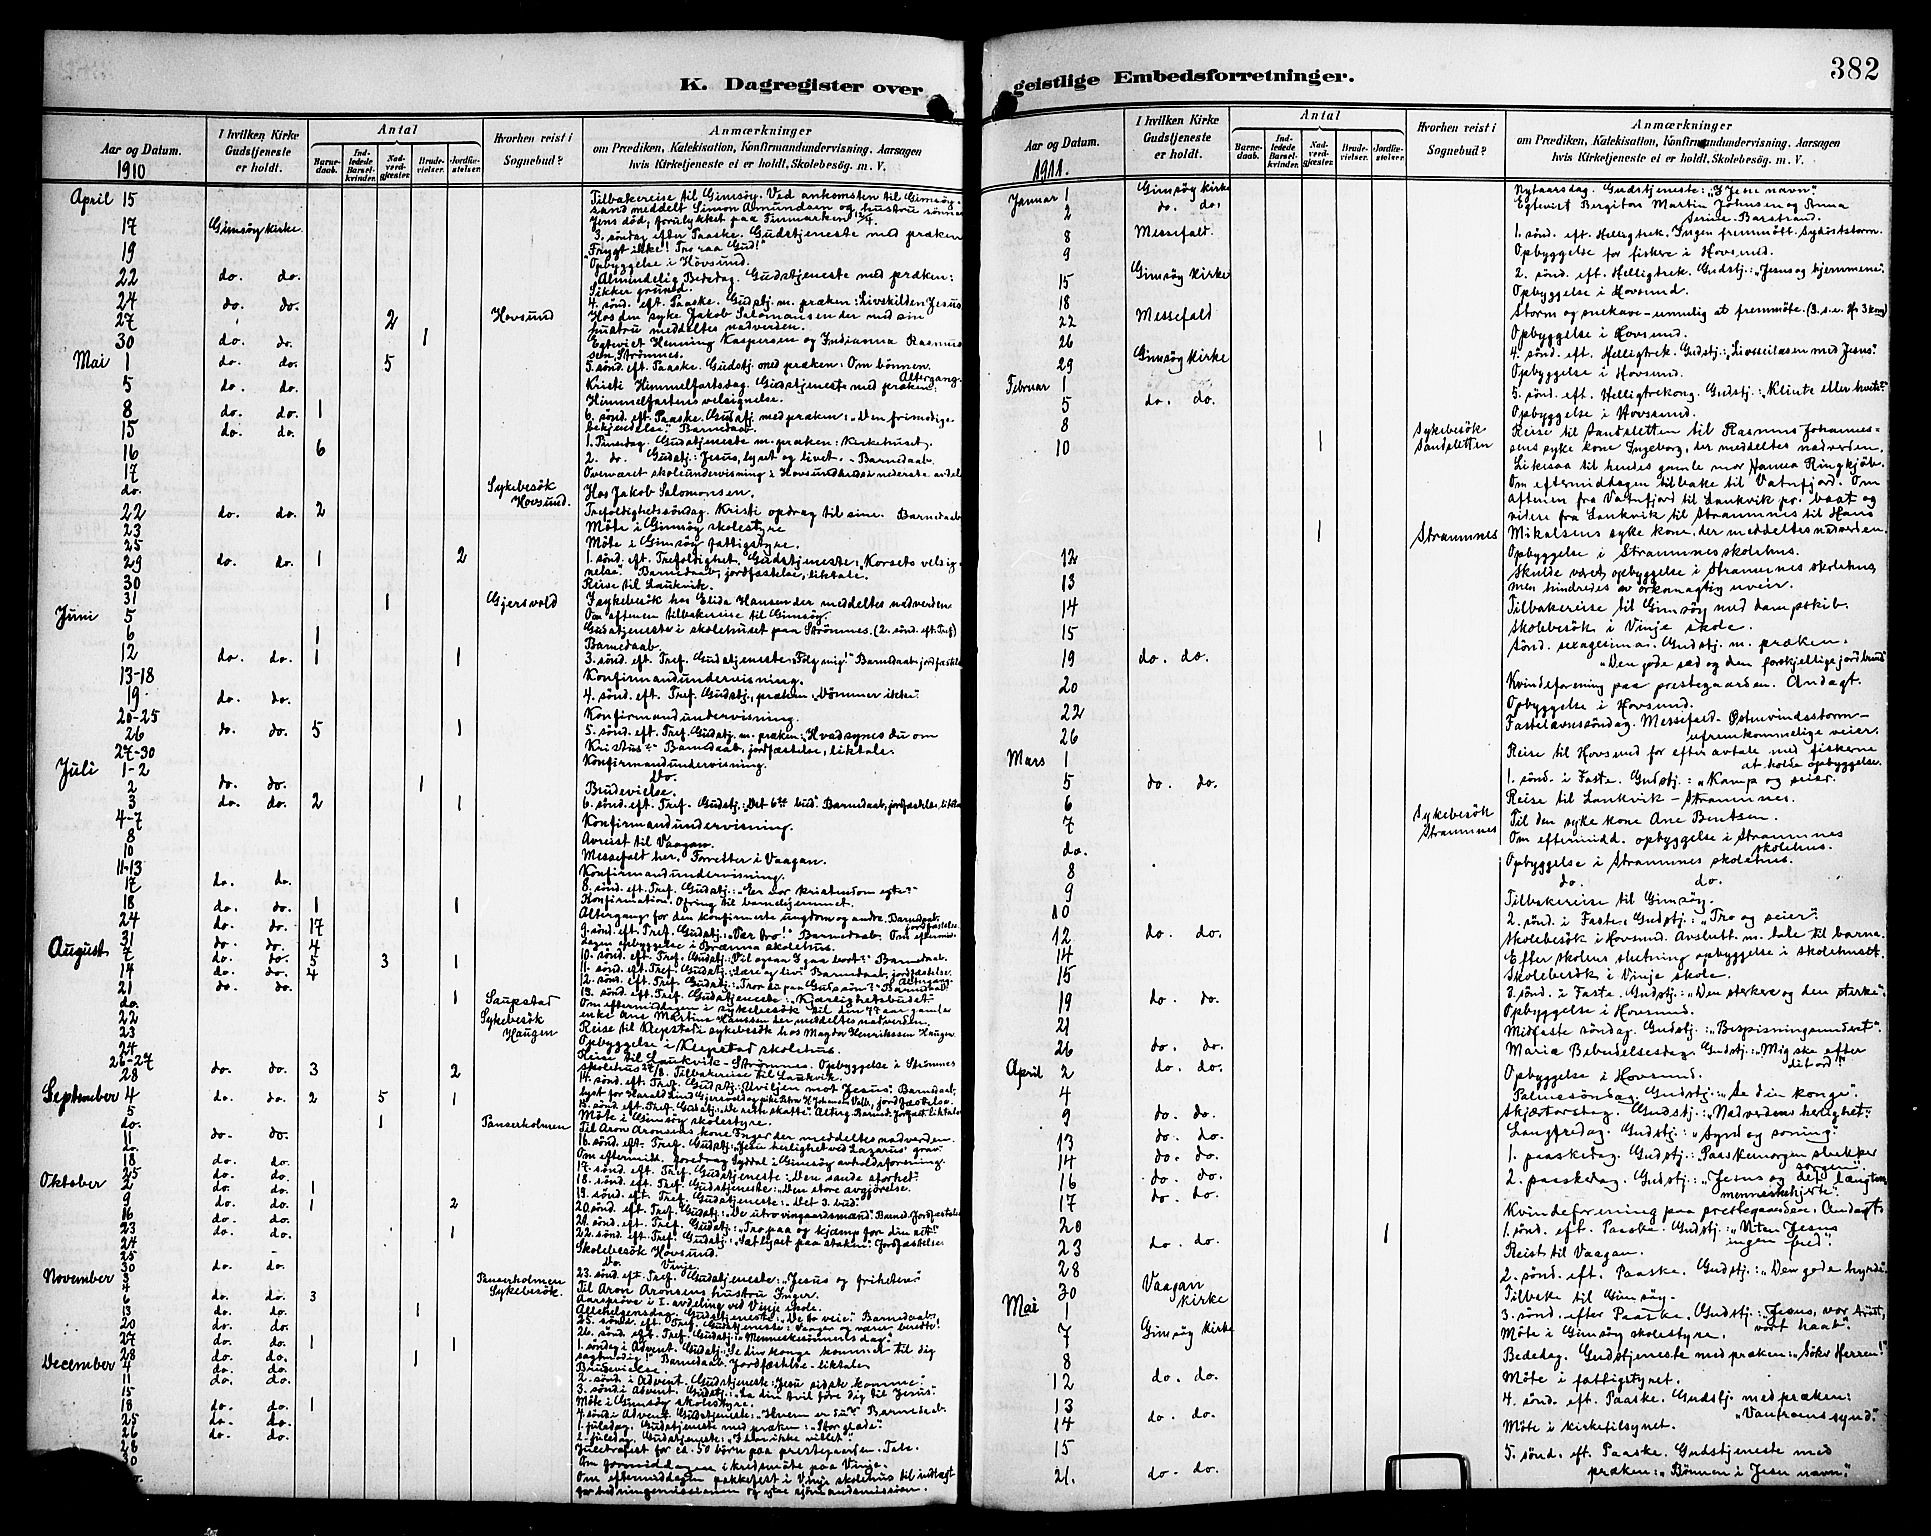 382
K. Dagregister over geistlige Embedsforretninger.
Aar og Datum.
1910
I hvilken Kirke Gudstjeneste er holdt.
Antal
Barnedaab.
Indledede Barselkvinder.
Nadverdgjester.
Brudevielser.
Jordfæstelser.
Hvorhen reist i Sognebud?
Anmærkninger
om Prædiken, Katekisation, Konfirmandundervisning. Aarsagen
hvis Kirketjeneste ei er holdt, Skolebesög. m. V.
April 15 Tilbakereise til Gimsöy. Ved ankomsten til Gimsöysand meddelt Simon Amundsen og hustru sönnen
Jens död, forulykket paa Finmarken 12/4.
17 Gimsöy kirke 3. söndag efter Paaske. Gudstjeneste med præken
"Frygt ikke! Tro paa Gud!"
19 Opbyggelse i Hovsund.
22 do. do. Almindelig Bededag. Gudstjeneste med præken:
Sikker grund.
24 do. do. 4. sönd. eft. Paaske. Gudstj. m. præken: Livskilden Jesus
27 2 Hovsund Hos den syke Jakob Salomonsen der med sin
hustru meddeltes nadverden.
30 do. do. 1 Egteviet Henning Kaspersen og Indianna Rasmussen, Strömnes.
Mai 1 do. do. 5 5. sönd. eft. Paaske. Gudstj. med præken: Om bönnen. Altergang.
5 do. do. Kristi Himmelfartsdag. Gudstjeneste med præken:
Himmelfartens velsignelse.
8 do. do. 1 6. sönd. eft. Paaske. Gudstj. med præken: "Den frimodige
bekjendelse". Barnedaab.
15 do. do. 1. Pinsedag. Gudstjeneste m. præken: Kirkehuset.
16 6 2. do. Gudstj: Jesus, lyset og livet. - Barnedaab.
17 Overværet skoleundervisning i Hovsund
do. Sykebesök Hovsund. Hos Jakob Salomonsen.
22 do. do. 2 Trefoldighetssöndag. Kristi opdrag til sine. Barnedaab
23 Möte i Gimsöy skolestyre
25 Möte i Gimsöy fattigstyre.
29 do. do. 1 2 1. sönd. eft. Trefoldighet. Gudstjeneste: "Korsets velsignelse". Barnedaab, jordfæstelse, liktale.
30 Reise til Laukvik.
31 1 Gjersvold I sykebesök hos Elida Hansen der meddeltes nadverden
Om aftenen tilbakereise til Gimsöy.
Juni 5 Gudstjeneste i skolehuset paa Strömnes. (2. sönd. eft. Tref)
6 1 Barnedaab.
12 do. do. 1 1 3. sönd. eft. Tref. Gudstjeneste: "Fölg mig!" Barnedaab, jordfæstelse
13-18 Konfirmandundervisning.
19 do. do. 4. sönd. eft. Tref. Gudstj., præken: "Dömmer ikke".
20-25 Konfirmandundervisning.
26 do. do. 5 1 5. sönd. eft. Tref. Gudstj. m. præken: "Hvad synes du om
Kristus?" Barnedaab, jordfæstelse, liktale.
27-30 Konfirmandundervisning.
Juli 1-2 Do.
2 do. do. 1 Brudevielse.
3 do. do. 2 1 6. sönd. eft. Tref. Gudstj.: "Det 6te bud". Barnedaab, jordfæstelse, liktale
4-7 Konfirmandundervisning.
8 Avreist til Vaagan.
10 Messefald her. Forretter i Vaagan.
11-13 Konfirmandundervisning.
17 do. do. 8. sönd. eft. Tref. Gudstj.: "Er vor kristendom egte?"
18 do. do. 1 1 Konfirmation. Ofring til barnehjemmet.
24 do. do. 17 Altergang for den konfirmerte ungdom og andre. Barnedaab.
31 do. do. 4 9. sönd. eft. Tref. Gudstj.: "Vær tro!" Barnedaab. jordfæstelse. Om eftermiddagen opbyggelse i Brenna skolehus.
August 7 do. do. 5 3 1 10. sönd. eft. Tref. Gudstj.: "Vil ogsaa I gaa bort?" Barnedaab.
14 do. do. 4 11. sönd. eft. Tref. Gudstj.: Lære og liv. Barnedaab, jordfæstelse.
21 do. do. 12. sönd. eft. Tref. Gudstj.: "Tror du paa Guds sön?" Barnedaab Altergang.
13. sönd. eft. Tref. Gudstjeneste: "Kjærlighetsbudet"
do. 1 Saupstad Om eftermiddagen i sykebesök til den 77 aar gamle
22 Sykebesök enke Ane Martina Hanssen der meddeltes nadverden.
23 Haugen Reise til Klepstad i sykebesök hos Magda Henriksen Haugen
24 Opbyggelse i Klepstad skolehus.
26-27 Reise til Laukvik - Strömnes. Opbyggelse i Strömnes
skolehus 27/8. Tilbakereise til Laukvik.
28 do. do. 3 2 14. sönd. eft. Tref. Gudstj.: Uviljen mot Jesus. Barnedaab,
September 4 do. do. 2 5 1 15. sönd. eft. Tref. Gudstj.: "De rette skatte". Alterg. Barned. jordfæst. liktale
5 Möte i Gimsöy skolestyre.
do. 1 Panserholmen Til Aron Aronsens kone Inger der meddeltes nadverden.
11 do. do. 16. sönd. eft. Tref. Gudstj.: "Jesu herlighet ved Lazarus' grav".
do. Om eftermidd. foredrag i Gimsöy avholdsforening.
18 do. do. 17. sönd. eft. Tref. Gudstjeneste: "Den sande storhet."
25 do. do. 18. sönd. eft. Tref. Gudstjeneste: "Den store avgjörelse.
Oktober 2 do. do. 1 19. sönd. eft. Tref. Gudstjeneste: "Det 3. bud".
9 do. do. 1 2 20. sönd. eft. Tref. Gudstj.: "De utro vingaardsmænd". Barned. Jordfæstelse
16 do. do. 21. sönd. eft. Tref. Gudstj.: "Tro paa og kjæmp for din ret!"
23 do. do. 1 22. sönd. eft. Tref. Gudstj.: "Sæt lyset paa staken". Jordfæstelse
24 Skolebesök Hovsund.
25 Do. Vinje.
30 do. do. 23. sönd. eft. Tref. Gudstjeneste: "Jesus og friheten".
November 3 Panserholmen Til Aron Aronsens hustru Inger.
4 Sykebesök. Aarspröve i I. avdeling ved Vinje skole.
6 do. do. 3 Allehelgensdag. Gudstjeneste: "De to veie". Barnedaab.
13 do. do. 1 25. sönd. eft. Tref. Gudstjeneste: Vaager og værer beredte!
20 do. do. 26. sönd. eft. Tref. Gudstj.: "Menneskesönnens dag".
27 do. do. 1 1 1. söndag i Advent. Gudstj.: "Se din konge kommer til dig
sagtmodig!" Barnedaab. Jordfæstelse - liktale
28 do. do. 1 Brudevielse.
December 4 do. do. 2. sönd. i Advent. Gudstjeneste: Jesu sidste komme.
11 do. do. 3. sönd. i Advent. Gudstj.: "La din tvil före dig til Jesus".
15 Möte i Gimsöy skolestyre.
18 do. do. 1 4. sönd. i Advent. Gudstjeneste: "Hvem er du?" Barnedaab
25 do. do. 1. juledag. Gudstjeneste med præken: "Stor glæde".
26 do. do. 2. juledag. Gudstjeneste: "I har ikke villet".
28 Juletræfest for ca. 50 börn paa prestegaarden. Tale.
30 Om formiddagen i kredsmöte paa Vinje.
Om eftermiddagen pakkefest i Vinje skolehus til indtægt
for hedningemissionen og ytre sjömandsmission.
Aar og Datum.
1911.
I hvilken Kirke Gudstjeneste er holdt.
Antal
Barnedaab.
Indledede Barselkvinder.
Nadverdgjester.
Brudevielser.
Jordfæstelser.
Hvorhen reist i Sognebud?
Anmærkninger
om Prædiken, Katekisation, Konfirmandundervisning. Aarsagen
hvis Kirketjeneste ei er holdt, Skolebesög. m. V.
Januar 1 Gimsöy kirke Nytaarsdag. Gudstjeneste: "I Jesu navn".
2 do. do. Egteviet Bergiton Martin Johnsen og Anna
Serine Barstrand.
8 Messefald. 1. sönd. eft. Helligtrek. Ingen fremmött. Sydöststorm.
9 Opbyggelse for fiskere i Hovsund.
15 Gimsöy kirke 2. sönd. eft. Helligtrek. Gudstj.: "Jesus og hjemmene".
18 Opbyggelse i Hovsund.
22 Messefald Storm og snekave - umulig at fremmöte. (3. s. e. H. 3 kong)
26 Opbyggelse i Hovsund.
29 Gimsöy kirke 4. sönd. eft. Helligtrek. Gudstj.: "Livsseilasen med Jesus".
Februar 1 Opbyggelse i Hovsund.
5 do. do. 5. sönd. eft. Helligtrekong. Gudstj.: "Klinte eller hvete?"
8 Opbyggelse i Hovsund.
10 1 Sykebesök Sandsletten Reise til Sandsletten til Rasmus Johannessens syke kone Ingeborg, der meddeltes nadverden.
Likesaa til hendes gamle mor Hanna Ringkjöb.
Om eftermiddagen tilbake til Vatnfjord. Om
aftenen fra Vatnfjord til Laukvik pr. baat og
videre fra Laukvik til Straumnes til Hans
1 Straumnes Mikalsens syke kone, der meddeltes nadverden.
12 Opbyggelse i Straumnes skolehus.
13 Skulde været opbyggelse i Straumnes skolehus,
men hindredes av orkanagtig uveir.
14 Tilbakereise til Gimsöy med dampskib.
15 Skolebesök i Vinje skole.
19 do. do. Sönd. sexagesima. Gudstj. m. præken.
"Den gode sæd og den forskjellige jordbund"
20 Kvindeforening paa prestegaarden. Andagt.
22 Opbyggelse i Hovsund.
26 Fastelavnssöndag. Messefald. Östenvindsstorm -
ufremkommelige veier.
Mars 1 Reise til Hovsund for efter avtale med fiskerne
at holde opbyggelse.
5 do. do. 1. sönd. i Faste. Gudstj.: "Kamp og seier.
6 Reise til Laukvik - Straumnes.
7 Sykebesök Straumnes Til den syke kone Ane Bentsen.
do. Om eftermidd. opbyggelse i Straumnes
skolehus.
8 Opbyggelse i Straumnes skolehus.
9 do. do.
10 Tilbakereise til Gimsöy.
12 do. do. 2. sönd. i Faste. Gudstj.: "Tro og seier".
14 Skolebesök i Hovsund. Avslutt. m. tale til barna.
Efter skolens slutning opbyggelse i skolehuset
15 Skolebesök i Vinje skole.
19 do. do. 3. sönd. i Faste. Gudstj.: "Den sterkere og den sterke".
21 Opbyggelse i Hovsund.
26 do. do. Midfaste söndag. Gudstj.: "Bespisningsundret".
April 2 do. do. Mariæ Bebudelsesdag. Gudstj.: "Mig ske efter
dit ord!"
4 Opbyggelse i Hovsund.
9 do. do. Palmesöndag. Gudstj.: "Se din konge".
13 do. do. Skjærtorsdag. Gudstj.: "Nadverdens herlighet".
14 do. do. Langfredag. Gudstj.: "Synd og soning".
16 do. do. 1. paaskedag. Gudstj.: "Paaskemorgen slukker
sorgen".
17 do. do. 2. paaskedag. Gudstj.: "Jesus og det længtende
menneskehjerte".
20 Kvindeforening paa prestegaarden. Andagt.
23 do. do. 1 1. sönd. eft. Paaske. Gudstj.: "Uten Jesus
ingen fred".
28 Reist til Vaagan.
30 Vaagan kirke 2. sönd. eft. Paaske. Gudstj.: "Den gode hyrde".
Mai 1 Tilbake til Gimsöy.
7 Gimsöy kirke 3. sönd. efter Paaske. Gudstj.: "Jesus, vor tröst,
vort haab".
8 Möte i Gimsöy skolestyre.
12 do. do. Bededag. Gudstjeneste med præken: "Söker Herren!"
13 Möte i fattigstyret.
14 do. do. 4. sönd. eft. Paaske. Gudstj. med præken:
"Vantroens synd".
15 Möte i kirketilsynet.
21. do. do. 5. sönd. eft. Paaske. Gudstjeneste med
præken: "Bönnen i Jesu navn".